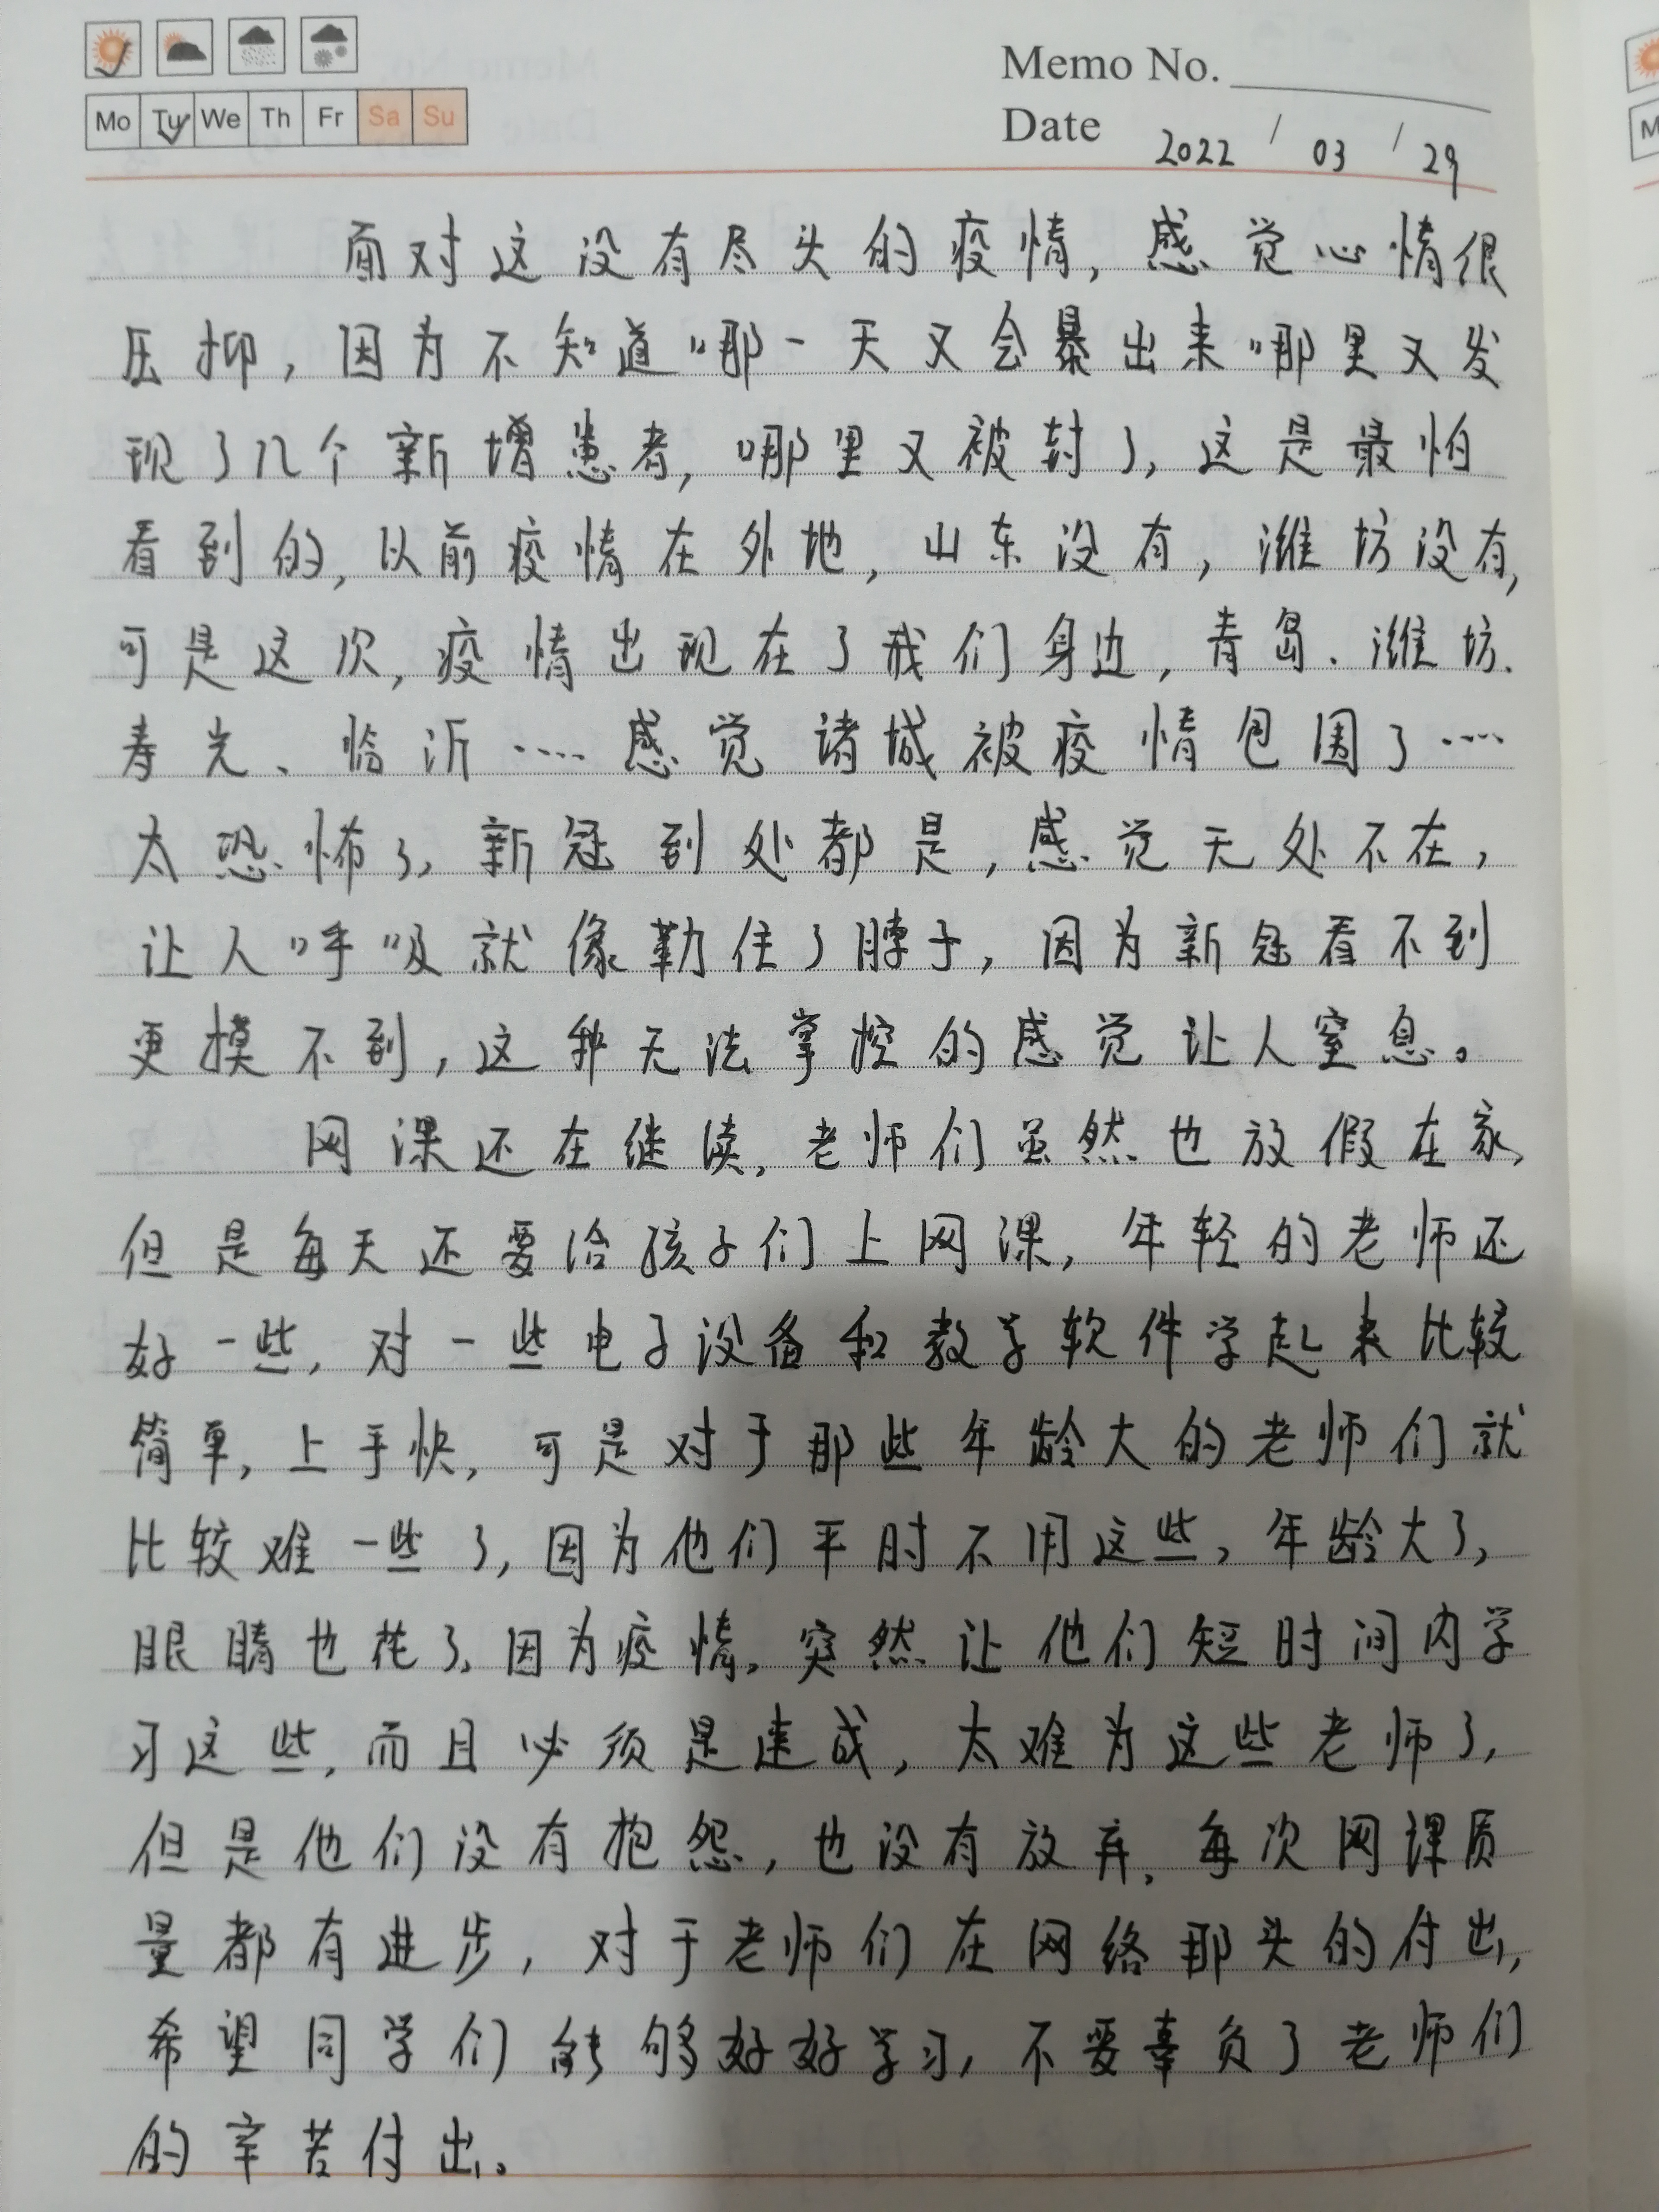 Memo No.
Mo Tu We Th Fr Sa Su
Date 2022 / 03 / 29
面对这没有尽头的疫情,感觉心情很
压抑,因为不知道哪一天又会暴出来哪里又发
现了几个新增患者,哪里又被封了,这是最怕
看到的,以前疫情在外地,山东没有,潍坊没有,
可是这次,疫情出现在了我们身边,青岛、潍坊、
寿光、临沂……感觉诸城被疫情包围了……
太恐怖了,新冠到处都是,感觉无处不在,
让人呼吸就像勒住了脖子,因为新冠看不到
更摸不到,这种无法掌控的感觉让人窒息。
网课还在继续,老师们虽然也放假在家,
但是每天还要给孩子们上网课,年轻的老师还
好一些,对一些电子设备和教学软件学起来比较
简单,上手快,可是对于那些年龄大的老师们就
比较难一些了,因为他们平时不用这些,年龄大了,
眼睛也花了,因为疫情,突然让他们短时间内学
习这些,而且必须是速成,太难为这些老师了,
但是他们没有抱怨,也没有放弃,每次网课质
量都有进步,对于老师们在网络那头的付出,
希望同学们能够好好学习,不要辜负了老师们
的辛苦付出。